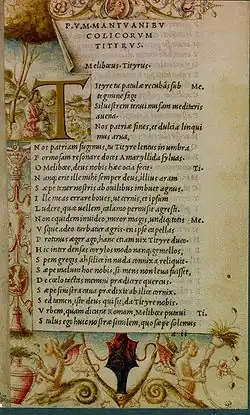 P. V. M. MANTVANI BV
COLICORVM
TITYRVS.
Melibœus. Tityrus.
TItyre tu patulæ recubãs sub Me.
tegmine fagi
Siluestrem tenui musam meditaris
auena.
Nos patriæ fines, et dulcia linqui
mus arua,
Nos patriam fugimus, tu Tityre lentus in umbra
Formosam resonare doces Amaryllida syluas.
O Melibœe, deus nobis hæc ocia fecit. Ti.
Nanq; erit ille mihi semper deus, illius aram
Sæpe tener nostris ab ouilibus imbuet agnus.
Ille meas errare boues, ut cernis, et ipsum
Ludere, quæ uellem, calamo permisit agresti.
Non equidem inuideo, miror magis, undiq; totis Me.
Vsque adeo turbatur agris. en ipse capellas
Protinus æger ago, hanc etiam uix Tityre duco.
Hic inter densas corylos modo nanq; gemellos,
Spem gregis ah silice in nuda connixa reliquit.
Sæpe malum hoc nobis, si mens non læua fuisset,
De cœlo tactas memini prædicere quercus.
Sæpe sinistra caua prædixit ab ilice cornix.
Sed tamen, iste deus qui sit, da Tityre nobis.
Vrbem, quam dicunt Romam, Melibœe putaui Ti.
Stultus ego huic nostræ similem, quo sæpe solemus